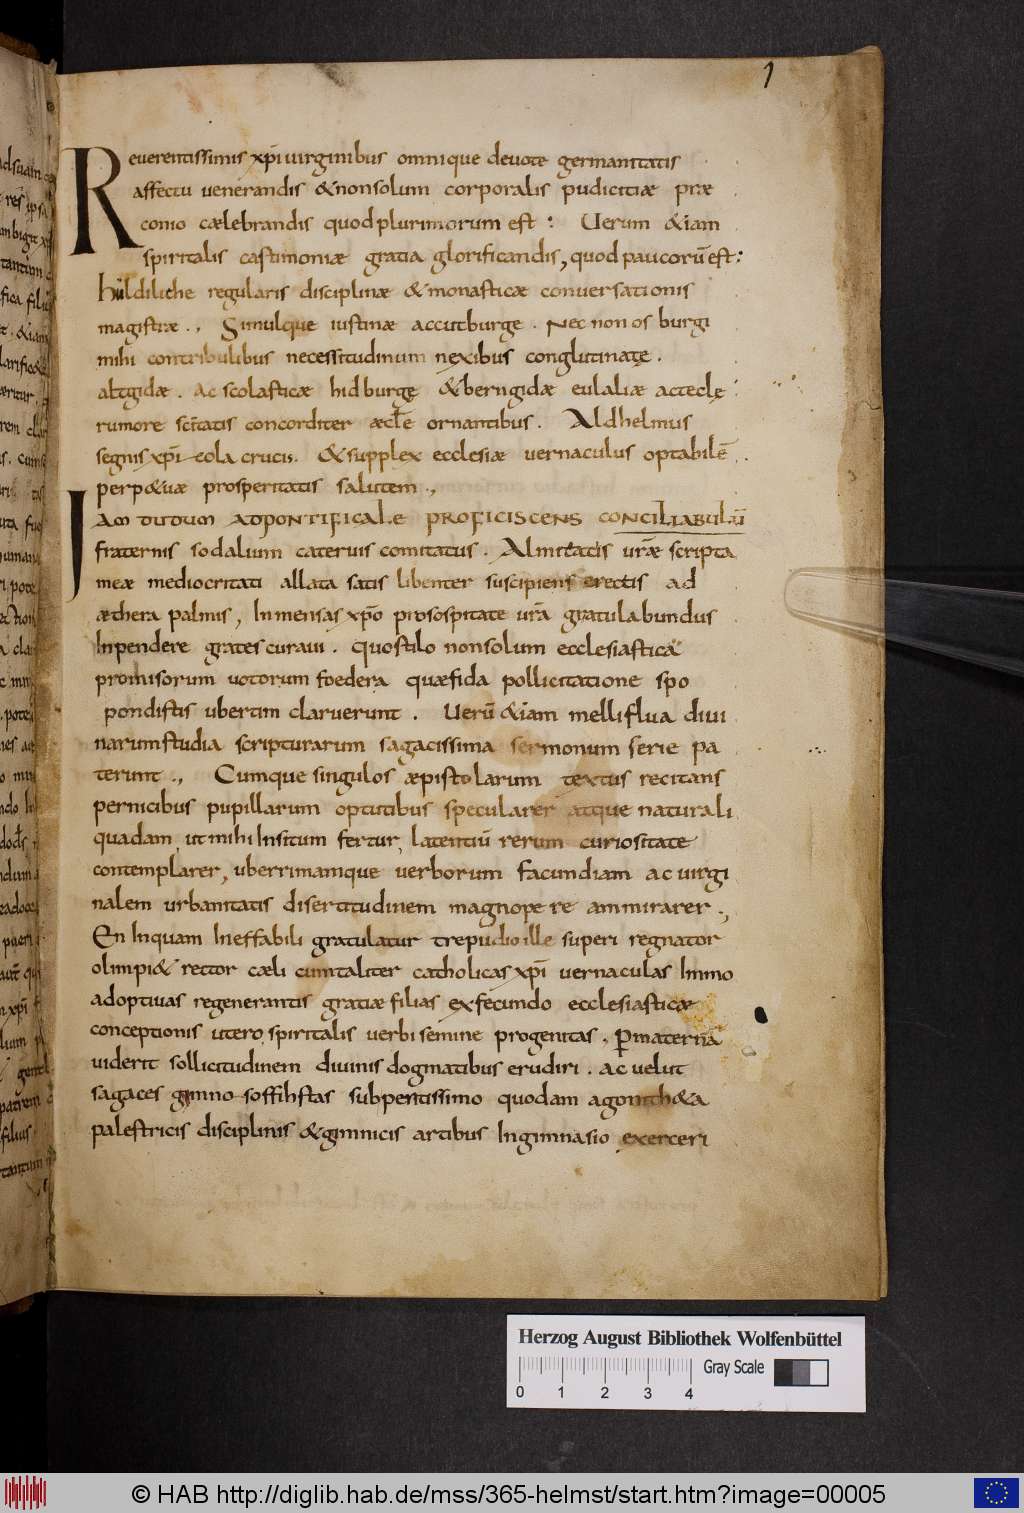 1
Reuerentissimis xp̄i uirginibus omnique deuote germanitatis
affectu uenerandis & non solum corporalis pudicitiæ præ
conio cælebrandis quod plurimorum est : Uerum &iam
spiritalis castimoniæ gratia glorificandis, quod paucorū est :
hildilithe regularis disciplinæ & monasticæ conuersationis
magistræ . , Simulque iustinæ accutburge . Nec non os burgi
mihi contribulibus necessitudinum nexibus conglutinatę .
aldgidæ . ac scolasticæ hidburgę & berngidæ eulaliæ ac teclę
rumore sc̄itatis concorditer æccl̄e ornantibus . Aldhelmus
segnis xp̄i cola crucis . & supplex ecclesiæ uernaculus optabilē
perp&uæ prosperitatis salutem . ,
Iam dudum ad pontificale proficiscens conciliabulū
fraternis sodalium cateruis comitatus . Almitatis ur̄æ scripta
meæ mediocritati allata satis libenter suscipiens erectis ad
æthera palmis, Inmensas xp̄o pro sospitate ur̄a gratulabundus
Inpendere grates curaui . quo stilo non solum ecclesiastica
promisorum uotorum foedera quæ fida pollicitatione spo
pondistis ubertim claruerunt . Uerū &iam melliflua diui
narum studia scripturarum sagacissima sermonum serie pa
terunt . , Cumque singulos æpistolarum textus recitans
pernicibus pupillarum optutibus specularer atque naturali
quadam ut mihi Insitum fertur, latentiū rerum curiositate
contemplarer, uberrimamque uerborum facundiam ac uirgi
nalem urbanitatis disertitudinem magnopere ammirarer . ,
En Inquam Ineffabili gratulatur trepudio ille superi regnator
olimpi & rector cæli cum taliter catholicas xp̄i uernaculas Immo
adoptiuas regenerantis gratiæ filias ex fecundo ecclesiasticæ
conceptionis utero spiritalis uerbi semine progenitas . P̄ maternā
uiderit sollicitudinem diuinis dogmatibus erudiri . ac uelut
sagaces gimno soffihstas sub peritissimo quodam agonith&a
palestricis disciplinis & gimnicis artibus In gimnasio exerceri
Herzog August Bibliothek Wolfenbüttel
Gray Scale
0 1 2 3 4
© HAB http://diglib.hab.de/mss/365-helmst/start.htm?image=00005